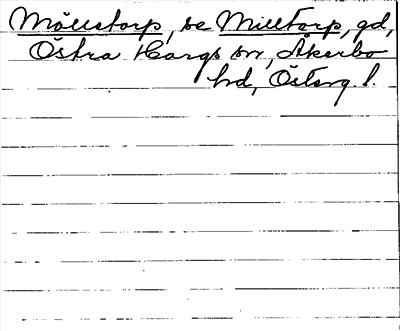 Möllstorp, se Milltorp, gd,
Östra Hargs sn, Åkerbo
hd, Österg. l.